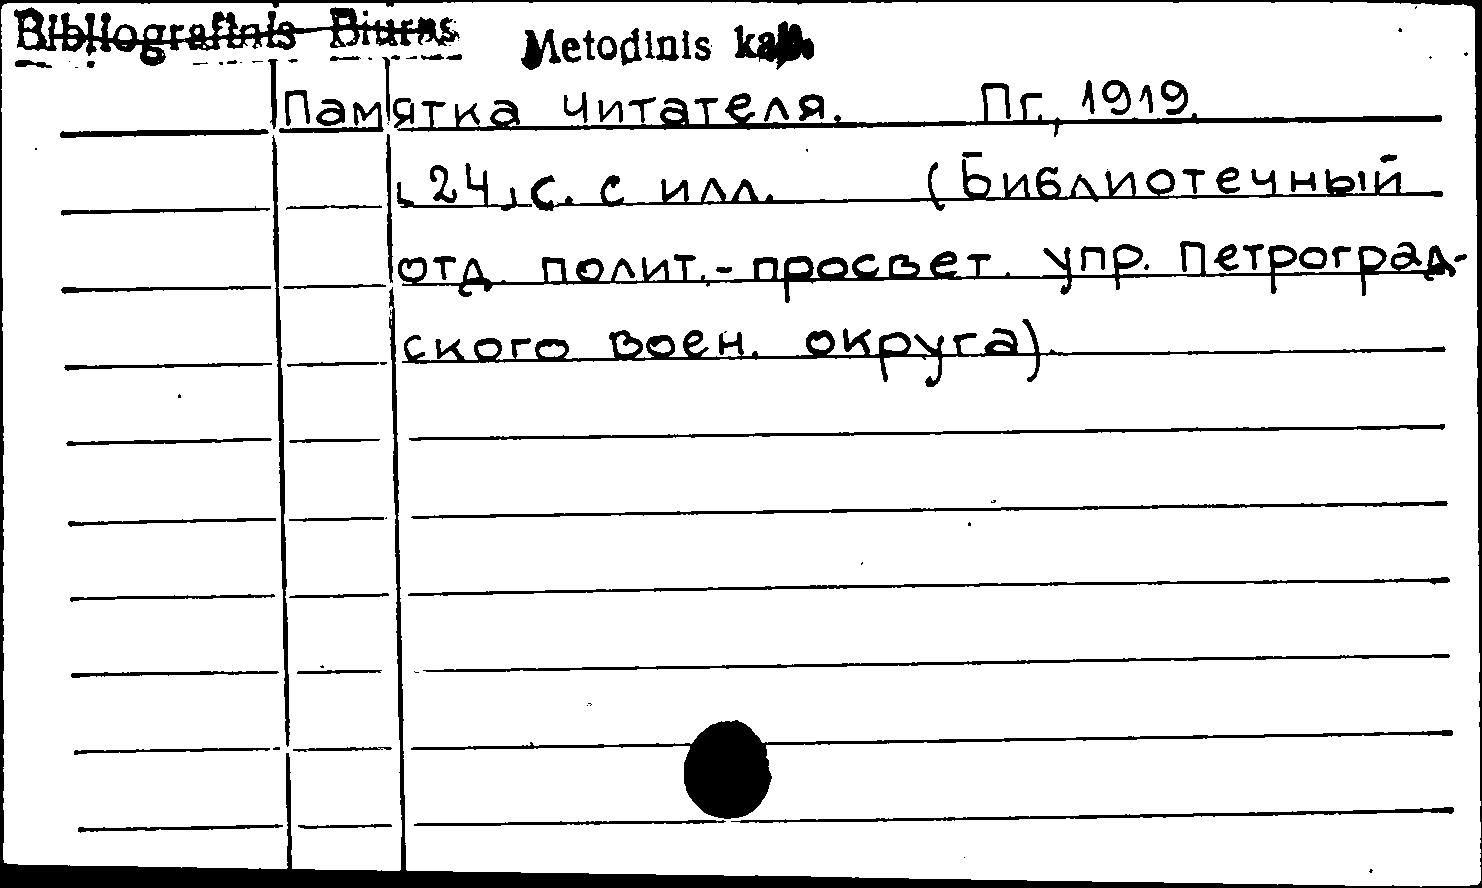 Bibliografinis Biuras Metodinis kab.
Памятка читателя. Пг., 1919.
⌞24⌟ с. с илл. (Библиотечный
отд. полит.-просвет. упр. Петроград-
ского воен. округа).